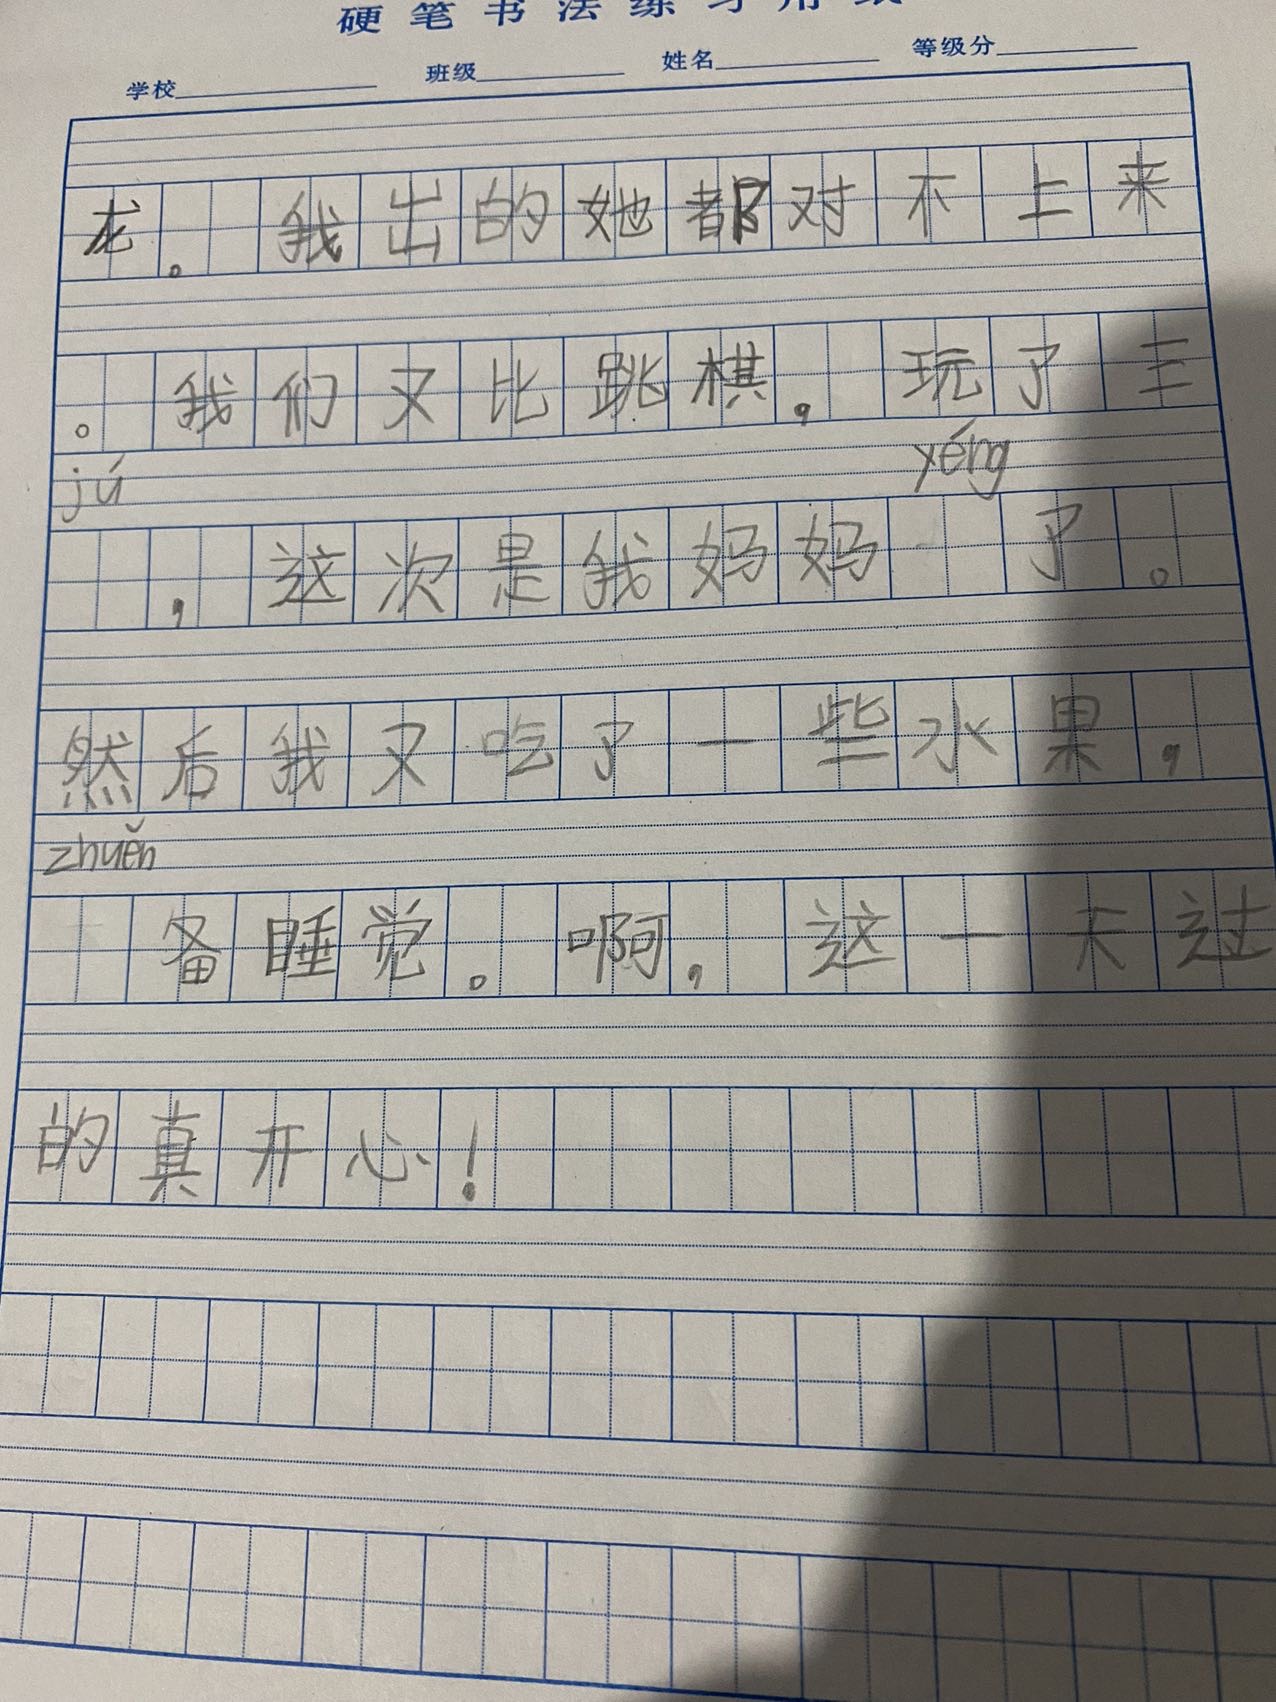 硬笔书法练习用纸
学校 班级 姓名 等级分
龙。我出的她都对不上来
。我们又比跳棋，玩了三
jú yéng
，这次是我妈妈 了。
然后我又吃了一些水果，
zhuěn
备睡觉。啊，这一天过
的真开心！